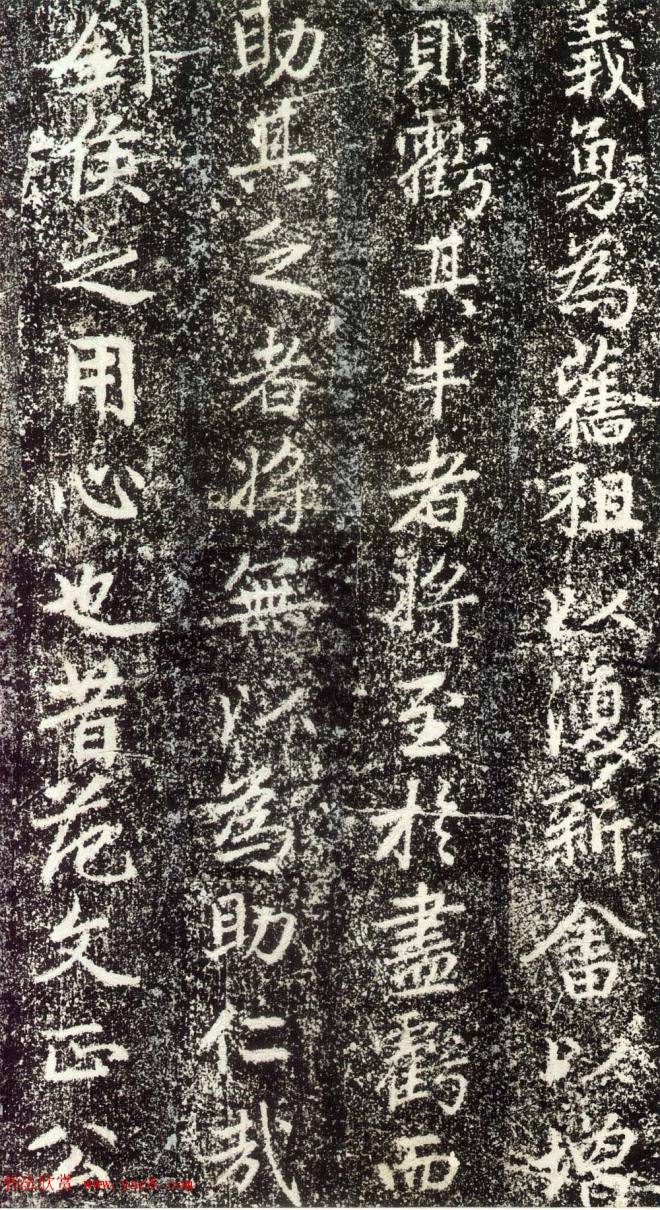 義勇為舊租以復新畬以增
則虧其半者將至於盡虧而
助其乏者將無以為助仁哉
劉侯之用心也昔范文正公
书法欣赏 www.yac8.com